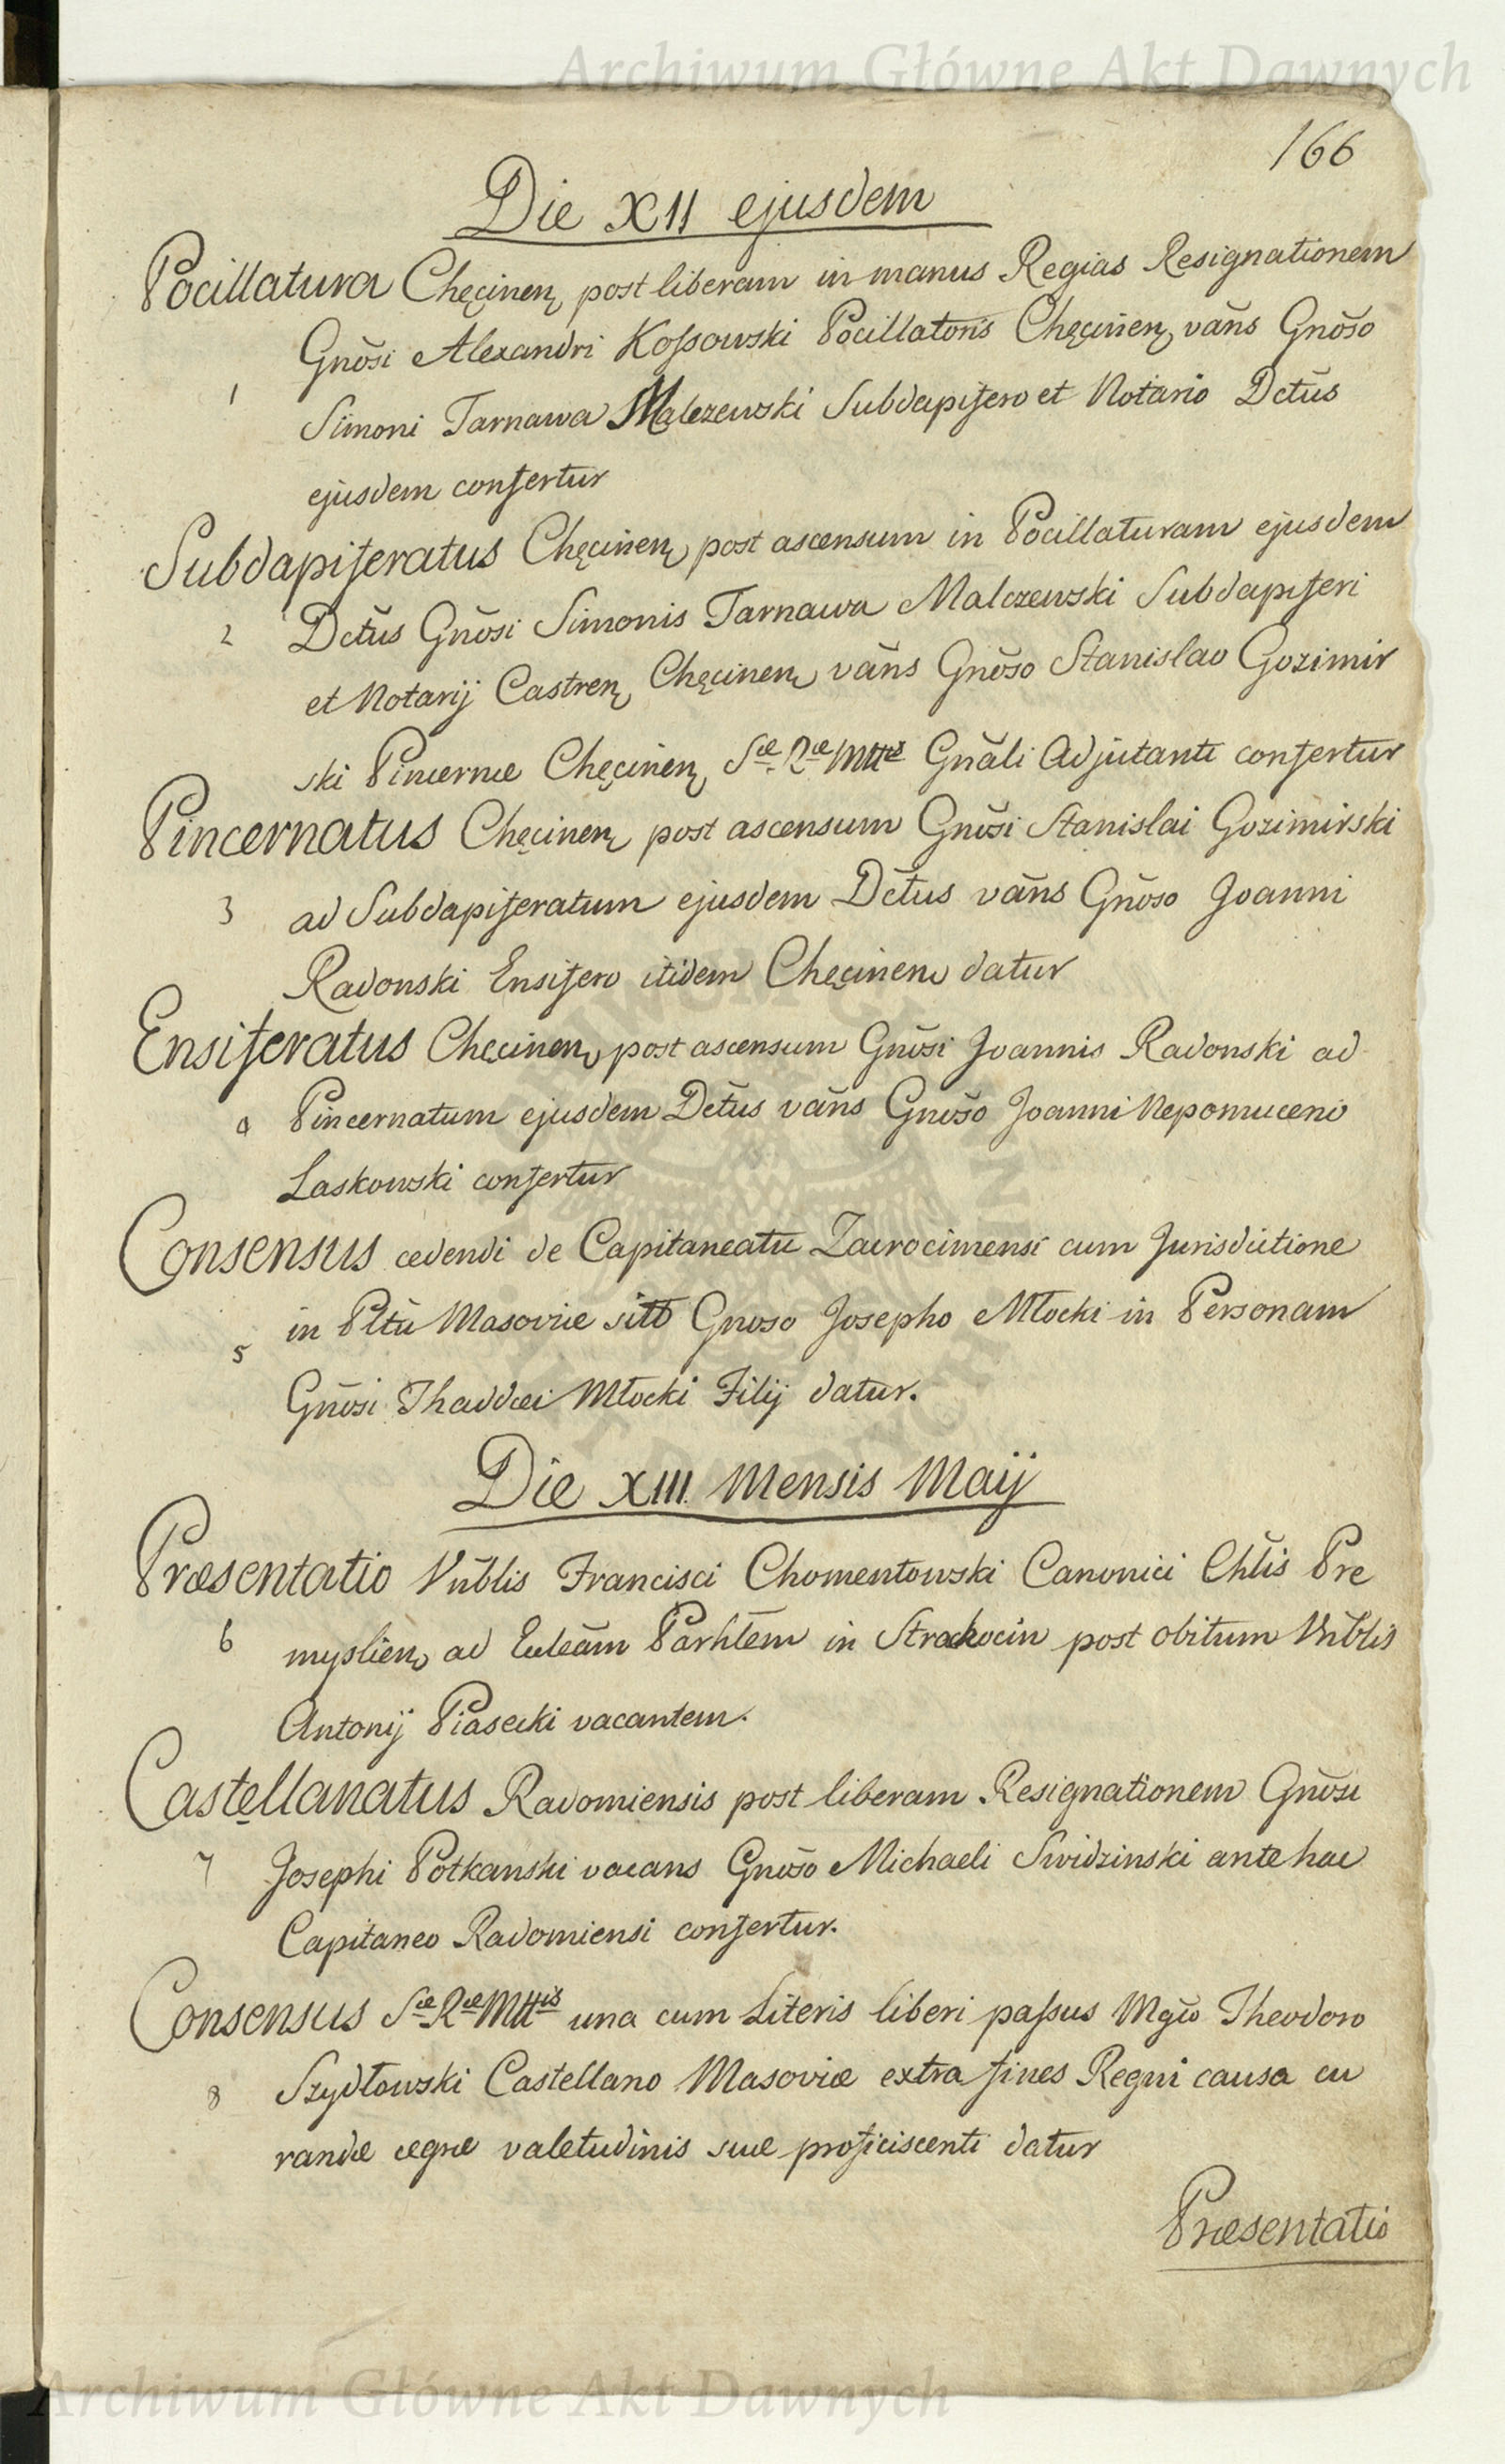 Archiwum Główne Akt Dawnych
166
Die XII ejusdem
Pocillatura Chęcinen, post liberam in manus Regias Resignationem
Gnõsi Alexandri Kossowski Pocillatoris Chęcinen, vãns Gnõso
1 Simoni Tarnawa Malczewski Subdapifero et Notario Dctũs
ejusdem confertur
Subdapiferatus Chęcinen, post ascensum in Pocillaturam ejusdem
2 Dctũs Gnõsi Simonis Tarnawa Malczewski Subdapiferi
et Notarij Castren, Chęcinen, vãns Gnõso Stanislao Gozimir
ski Pincernæ Chęcinen, Sæ Ræ Mttis Gnãli Adjutanti confertur
Pincernatus Chęcinen, post ascensum Gnõsi Stanislai Gozimirski
3 ad Subdapiferatum ejusdem Dctũs vãns Gnõso Joanni
Radonski Ensifero itidem Chęcinen, datur
Ensiferatus Chęcinen, post ascensum Gnõsi Joannis Radonski ad
4 Pincernatum ejusdem Dctũs vãns Gnõso Joanni Nepomuceno
Laskowski confertur
Consensus cedendi de Capitaneatu Zacrocimensi cum Jurisdictione
5 in Pltũ Masoviæ sitõ Gnoso Josepho Młocki in Personam
Gnõsi Thaddæi Młocki Filij datur.
Die XIII. Mensis Maij
Præsentatio Vnb̃lis Francisci Chomentowski Canonici Chl̃is Pre
6 myslien, ad Ecleãm Parhl̃em in Strachocin post obitum Vnb̃lis
Antonij Piasecki vacantem.
Castellanatus Radomiensis post liberam Resignationem Gnõsi
7 Josephi Potkanski vacans Gnõso Michaeli Swidzinski antehac
Capitaneo Radomiensi confertur.
Consensus Sæ Ræ Mttis una cum Literis liberi passus Mgcõ Theodoro
8 Szydłowski Castellano Masoviæ extra fines Regni causa cu
randæ ægræ valetudinis suæ proficiscenti datur
Præsentatio
Archiwum Główne Akt Dawnych